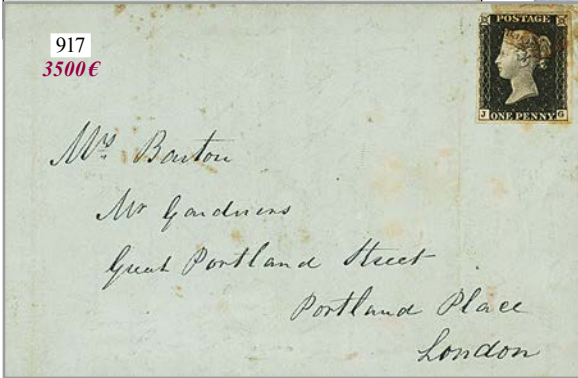 917
3500 €
POSTAGE
J ONE PENNY G
Mrs Barton
Mr Gardners
Great Portland Street
Portland Place
London